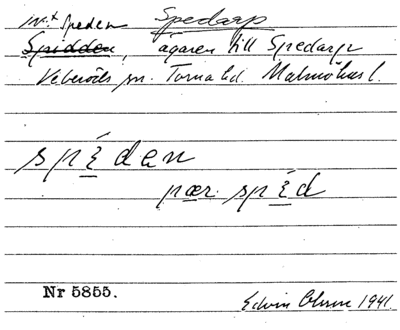 Spedarp
Speden
Spidden, ägaren till Spedarp
Veberöds sn. Torna hd. Malmöhus l.
spɛ́dən
pær spɛ́d
Nr 5855.
Edvin Ohlsson 1941.